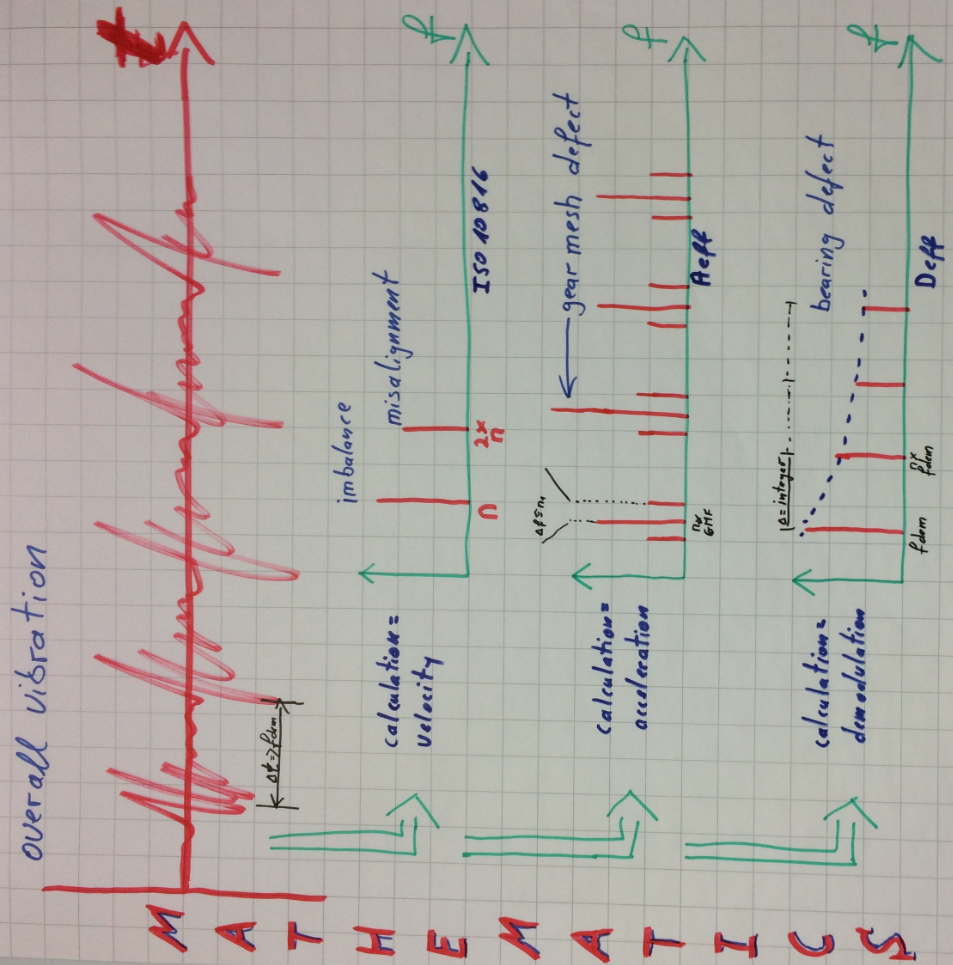 overall vibration
t
Δt => fdem
MATHEMATICS
calculation=
velocity
imbalance
misalignment
n
2x
n
ISO 10816
f
calculation=
acceleration
Δf=n
gear mesh defect
nx
GMF
Aeff
f
calculation=
demodulation
Δ=integer
bearing defect
fdem
nx
fdem
Deff
f